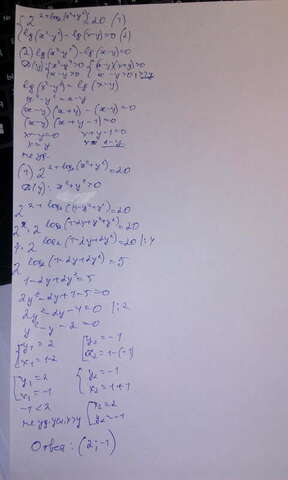 { 2^(2+log₂(x²+y²)) = 20 (1)
{ lg(x²-y²) - lg(x-y)=0 (2)
(2) lg(x²-y²) - lg(x-y)=0
x²-y²>0 (x-y)(x+y)>0
x-y>0 x-y>0
lg(x²-y²) = lg(x-y)
x²-y² = x-y
(x-y)(x+y) - (x-y)=0
(x-y)(x+y-1)=0
x-y=0 x+y-1=0
x=y x=1-y
не уд.
(1) 2^(2+log₂(x²+y²)) = 20
x²+y²>0
2^(2+log₂((1-y)²+y²)) = 20
2²·2^(log₂(1-2y+y²+y²)) = 20
4·2^(log₂(1-2y+2y²)) = 20 |:4
2^(log₂(1-2y+2y²)) = 5
1-2y+2y²=5
2y²-2y+1-5=0
2y²-2y-4=0 |:2
y²-y-2=0
{ y₁=2 { y₂=-1
{ x₁=1-2 { x₂=1-(-1)
{ y₁=2 { y₂=-1
{ x₁=-1 { x₂=1+1
-1<2 { x₂=2
не уд. x>y { y₂=-1
Ответ: (2;-1)